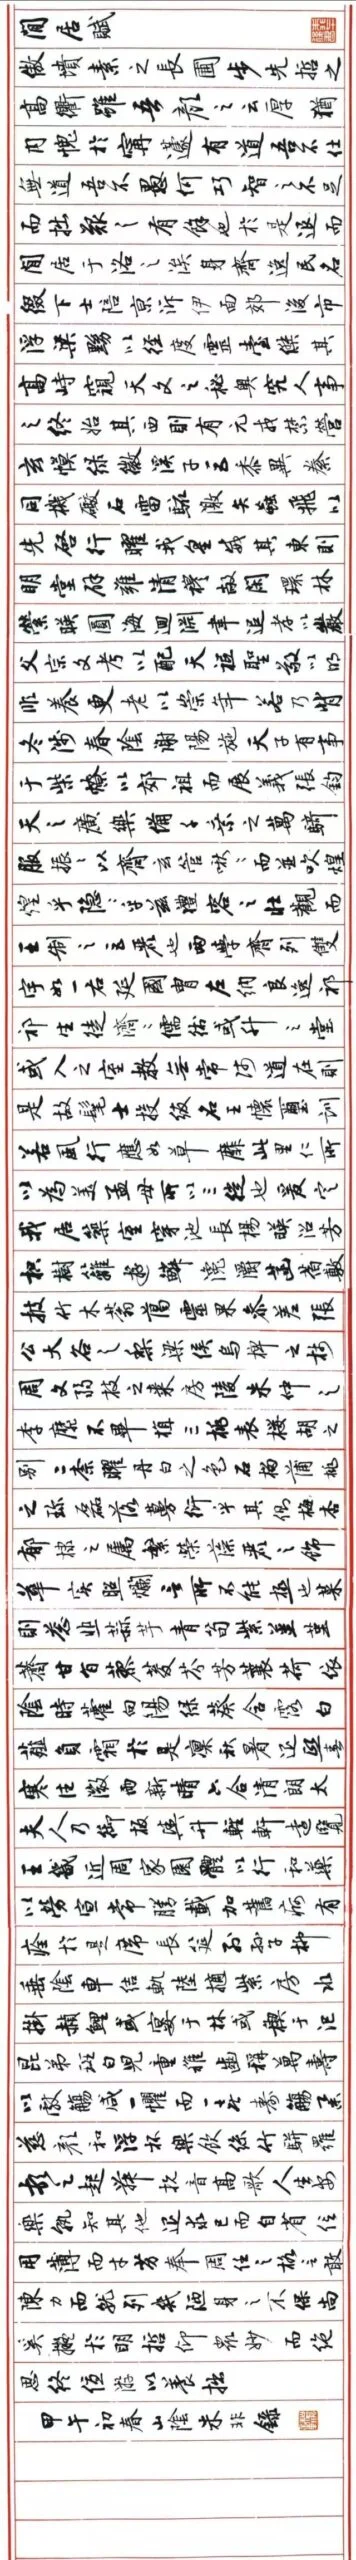 閒居賦
傲墳素之長圃步先哲之
高衢雖吾顏之云厚猶
內愧於甯蘧有道吾不仕
無道吾不愚何巧智之不足
而拙艱之有餘也於是退而
閒居于洛之涘身齊逸民名
綴下士陪京泝伊面郊後市
浮梁黝以徑度靈臺傑其
高峙窺天文之秘奧究人事
之終始其西則有元戎禁營
玄幙綠徽溪子巨黍異絭
同機礮石雷駭激矢蝱飛以
先啓行曜我皇威其東則
明堂辟雍清穆敞閑環林
縈映圓海迴淵聿追孝以嚴
父宗文考以配天祗聖敬以明
順養更老以崇年若乃背
冬涉春陰謝陽施天子有事
于柴燎以郊祖而展義張鈞
天之廣樂備千乘之萬騎
服振〻以齊玄管啾〻而並吹煌
煌乎隱〻乎茲禮容之壯觀而
王制之巨麗也兩學齊列雙
宇如一右延國胄左納良逸祁
祁生徒濟〻儒術或升之堂
或入之室教無常師道在則
是故髦士投紱名王懷璽訓
若風行應如草靡此里仁所
以為美孟母所以三徙也爰定
我居築室穿池長楊映沼芳
枳樹籬遊鱗瀺灂菡萏敷
披竹木蓊藹靈果參差張
公大谷之梨梁侯烏椑之柿
周文弱枝之棗房陵朱仲之
李靡不畢植三桃表櫻胡之
別二柰曜丹白之色石榴蒲桃
之珍磊落蔓衍乎其側梅杏
郁棣之屬繁榮藻麗之飾
華實照爛言所不能極也菜
則蔥韭蒜芋青筍紫薑堇
薺甘旨蓼荾芬芳蘘荷依
陰時藿向陽綠葵含露白
薤負霜於是凜秋暑退熙春
寒往微雨新晴六合清朗太
夫人乃御板輿升輕軒遠覽
王畿近周家園體以行和藥
以勞宣常膳載加舊痾有
痊於是席長筵列孫子柳
垂陰車結軌陸摘紫房水
掛赬鯉或宴于林或禊于汜
昆弟斑白兒童稚齒稱萬壽
以獻觴咸一懼而一喜壽觴舉
慈顏和浮杯樂飲絲竹駢羅
頓足起舞抗音高歌人生安
樂孰知其他退求己而自省信
用薄而才劣奉周任之格言敢
陳力而就列幾陋身之不保尚
奚擬於明哲仰衆妙而絕
思終優游以養拙
甲午初春山陰朱非錄